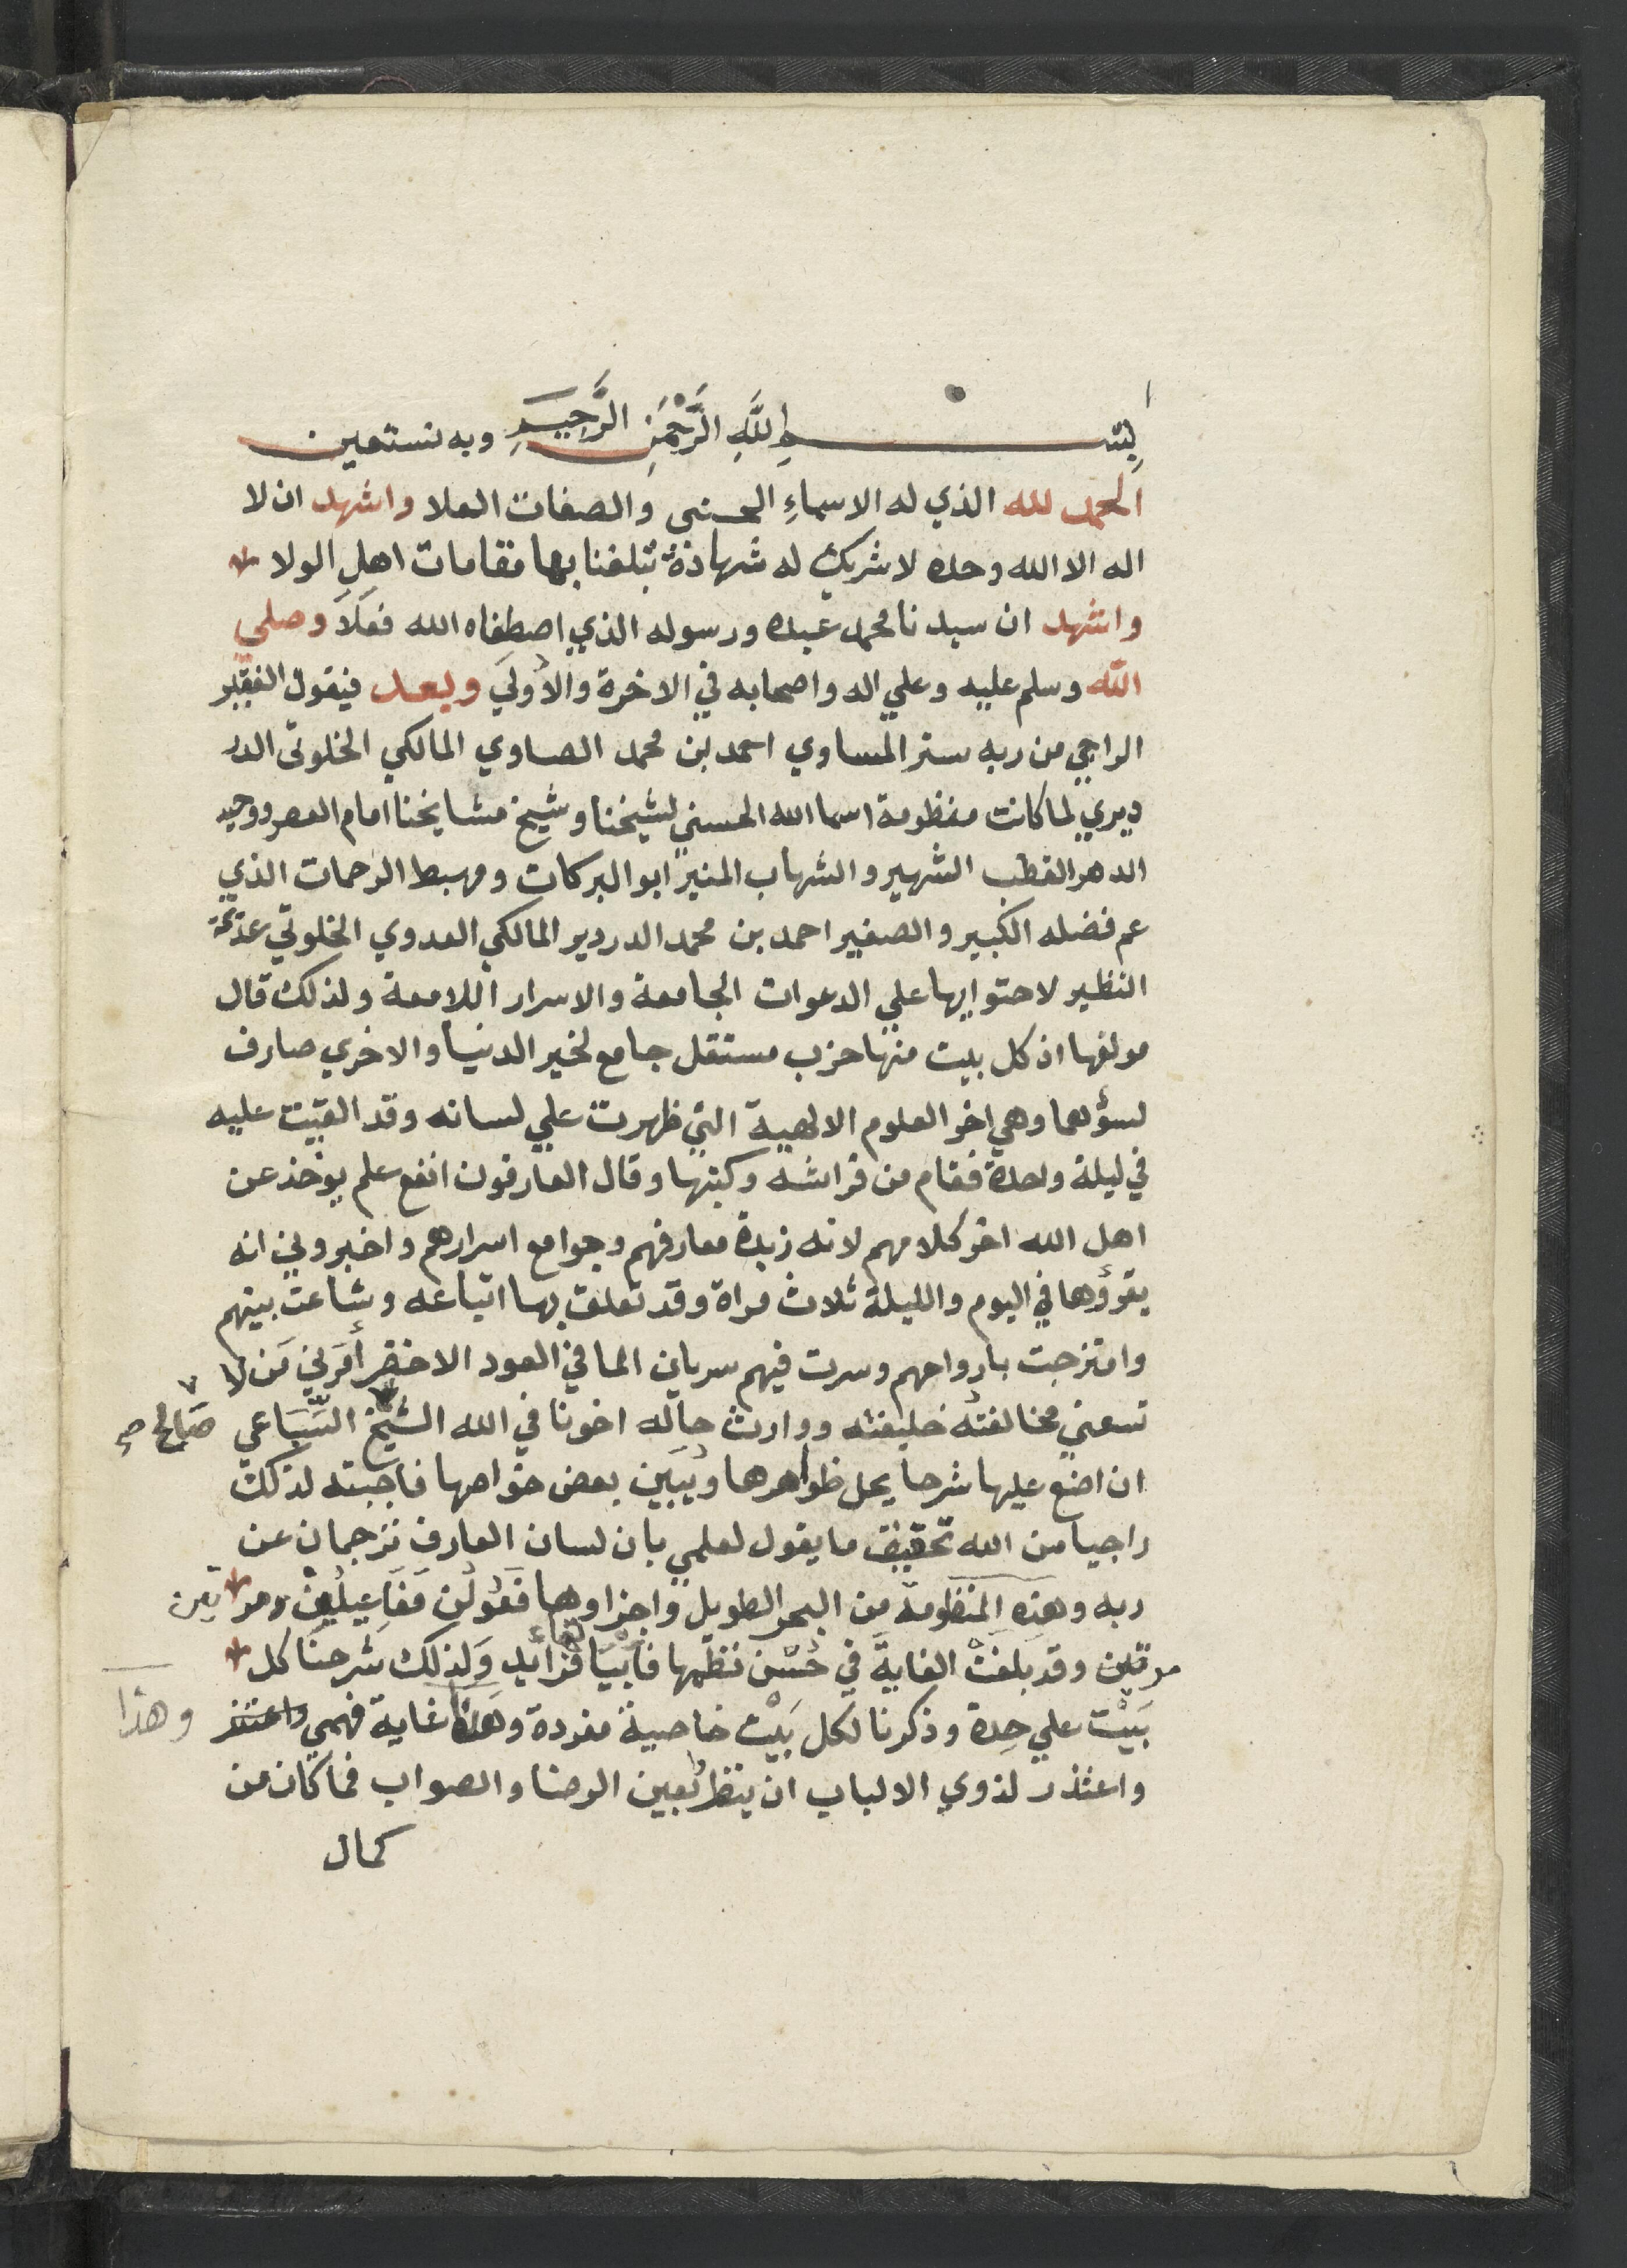 بِسْمِ اللَّهِ الرَّحْمَنِ الرَّحِيمِ وبه نستعين
الحمد لله الذي له الاسماءِ الحسنى والصفات العلا واشهد ان لا
اله الا الله وحده لا شريك له شهادةً تبلغنا بها مقامات اهل الولا
واشهد ان سيدنا محمد عبده ورسوله الذي اصطفاه الله فعَلَا وصلى
الله وسلم عليه وعلي اله واصحابه في الاخرة والأولَي وبعد فيقول الفقير
الراجي من ربه ستر المساوي احمد بن محمد الصاوي المالكي الخلوتى الدر
ديري لما كانت منظومة اسما الله الحسني لشيخنا وشيخ مشايخنا امام العصر ووحيد
الدهر القطب الشهير والشهاب المنير ابو البركات ومهبط الرحمات الذي
عم فضله الكبير والصغير احمد بن محمد الدردير المالكي العدوي الخلوتي عديمة
النظير لاحتوايها علي الدعوات الجامعة والاسرار اللامعة ولذلك قال
مولفها اذ كل بيت منها حزب مستقل جامع لخير الدنيا والاخري صارف
لسؤهما وهي اخر العلوم الالهية التي ظهرت علي لسانه وقد القيت عليه
في ليلة واحدة فقام من فراشه وكتبها وقال العارفون انفع علم يوخذ عن
اهل الله اخر كلامهم لانه زبدة معارفهم وجوامع اسرارهم واخبروني انه
يقرؤها في اليوم والليلة ثلاث مراة وقد تعلق بها اتباعه وشاعت بينهم
وامتزجت بارواحهم وسرت فيهم سريان الما في العود الاخضر أمَرَني مَن لا
تسعني مخالفتُه خليفته ووارث حاله اخونا في الله الشيخ السِّبَاعي صَالح صح
ان اضع عليها شرحا يحل ظواهرها ويُبَين بعض خواصها فاجبته لذلك
راجيا من الله تحقيق ما يقول لعلمي بان لسان العارف ترجمان عن
ربه وهذه المنظومة من البحر الطويل واجزاوها فَعُولُن مَفَاعِيلُن مر تين
مرتين وقد بلغتْ الغايةَ في حُسْن نظمها فابْيَاتُها فرائد وَلذلك شرحنَا كل
بَيْت علي حِدة وذكرنا لكل بَيْت خاصية مفردة وهذا غاية فهمي واعتذر وهذا
واعتذر لذوي الالباب ان ينظر بعين الرضا والصواب فما كان من
كمال